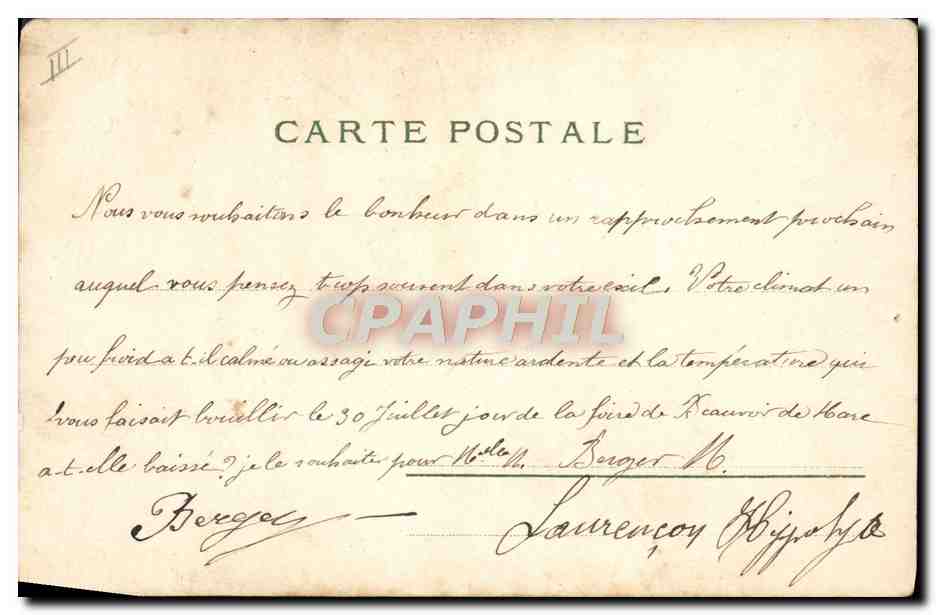 III
CARTE POSTALE
Nous vous souhaitons le bonheur dans un rapprochement prochain
auquel vous pensez trop souvent dans votre exil. Votre climat un
CPAPHIL
peu froid a t-il calmé ou assagi votre nature ardente et la température qui
vous faisait bouillir le 30 Juillet jour de la foire de Beauvoir de Marc
a-t-elle baissé? je le souhaite pour Berger M.
Berger
Laurençon Hippolyte